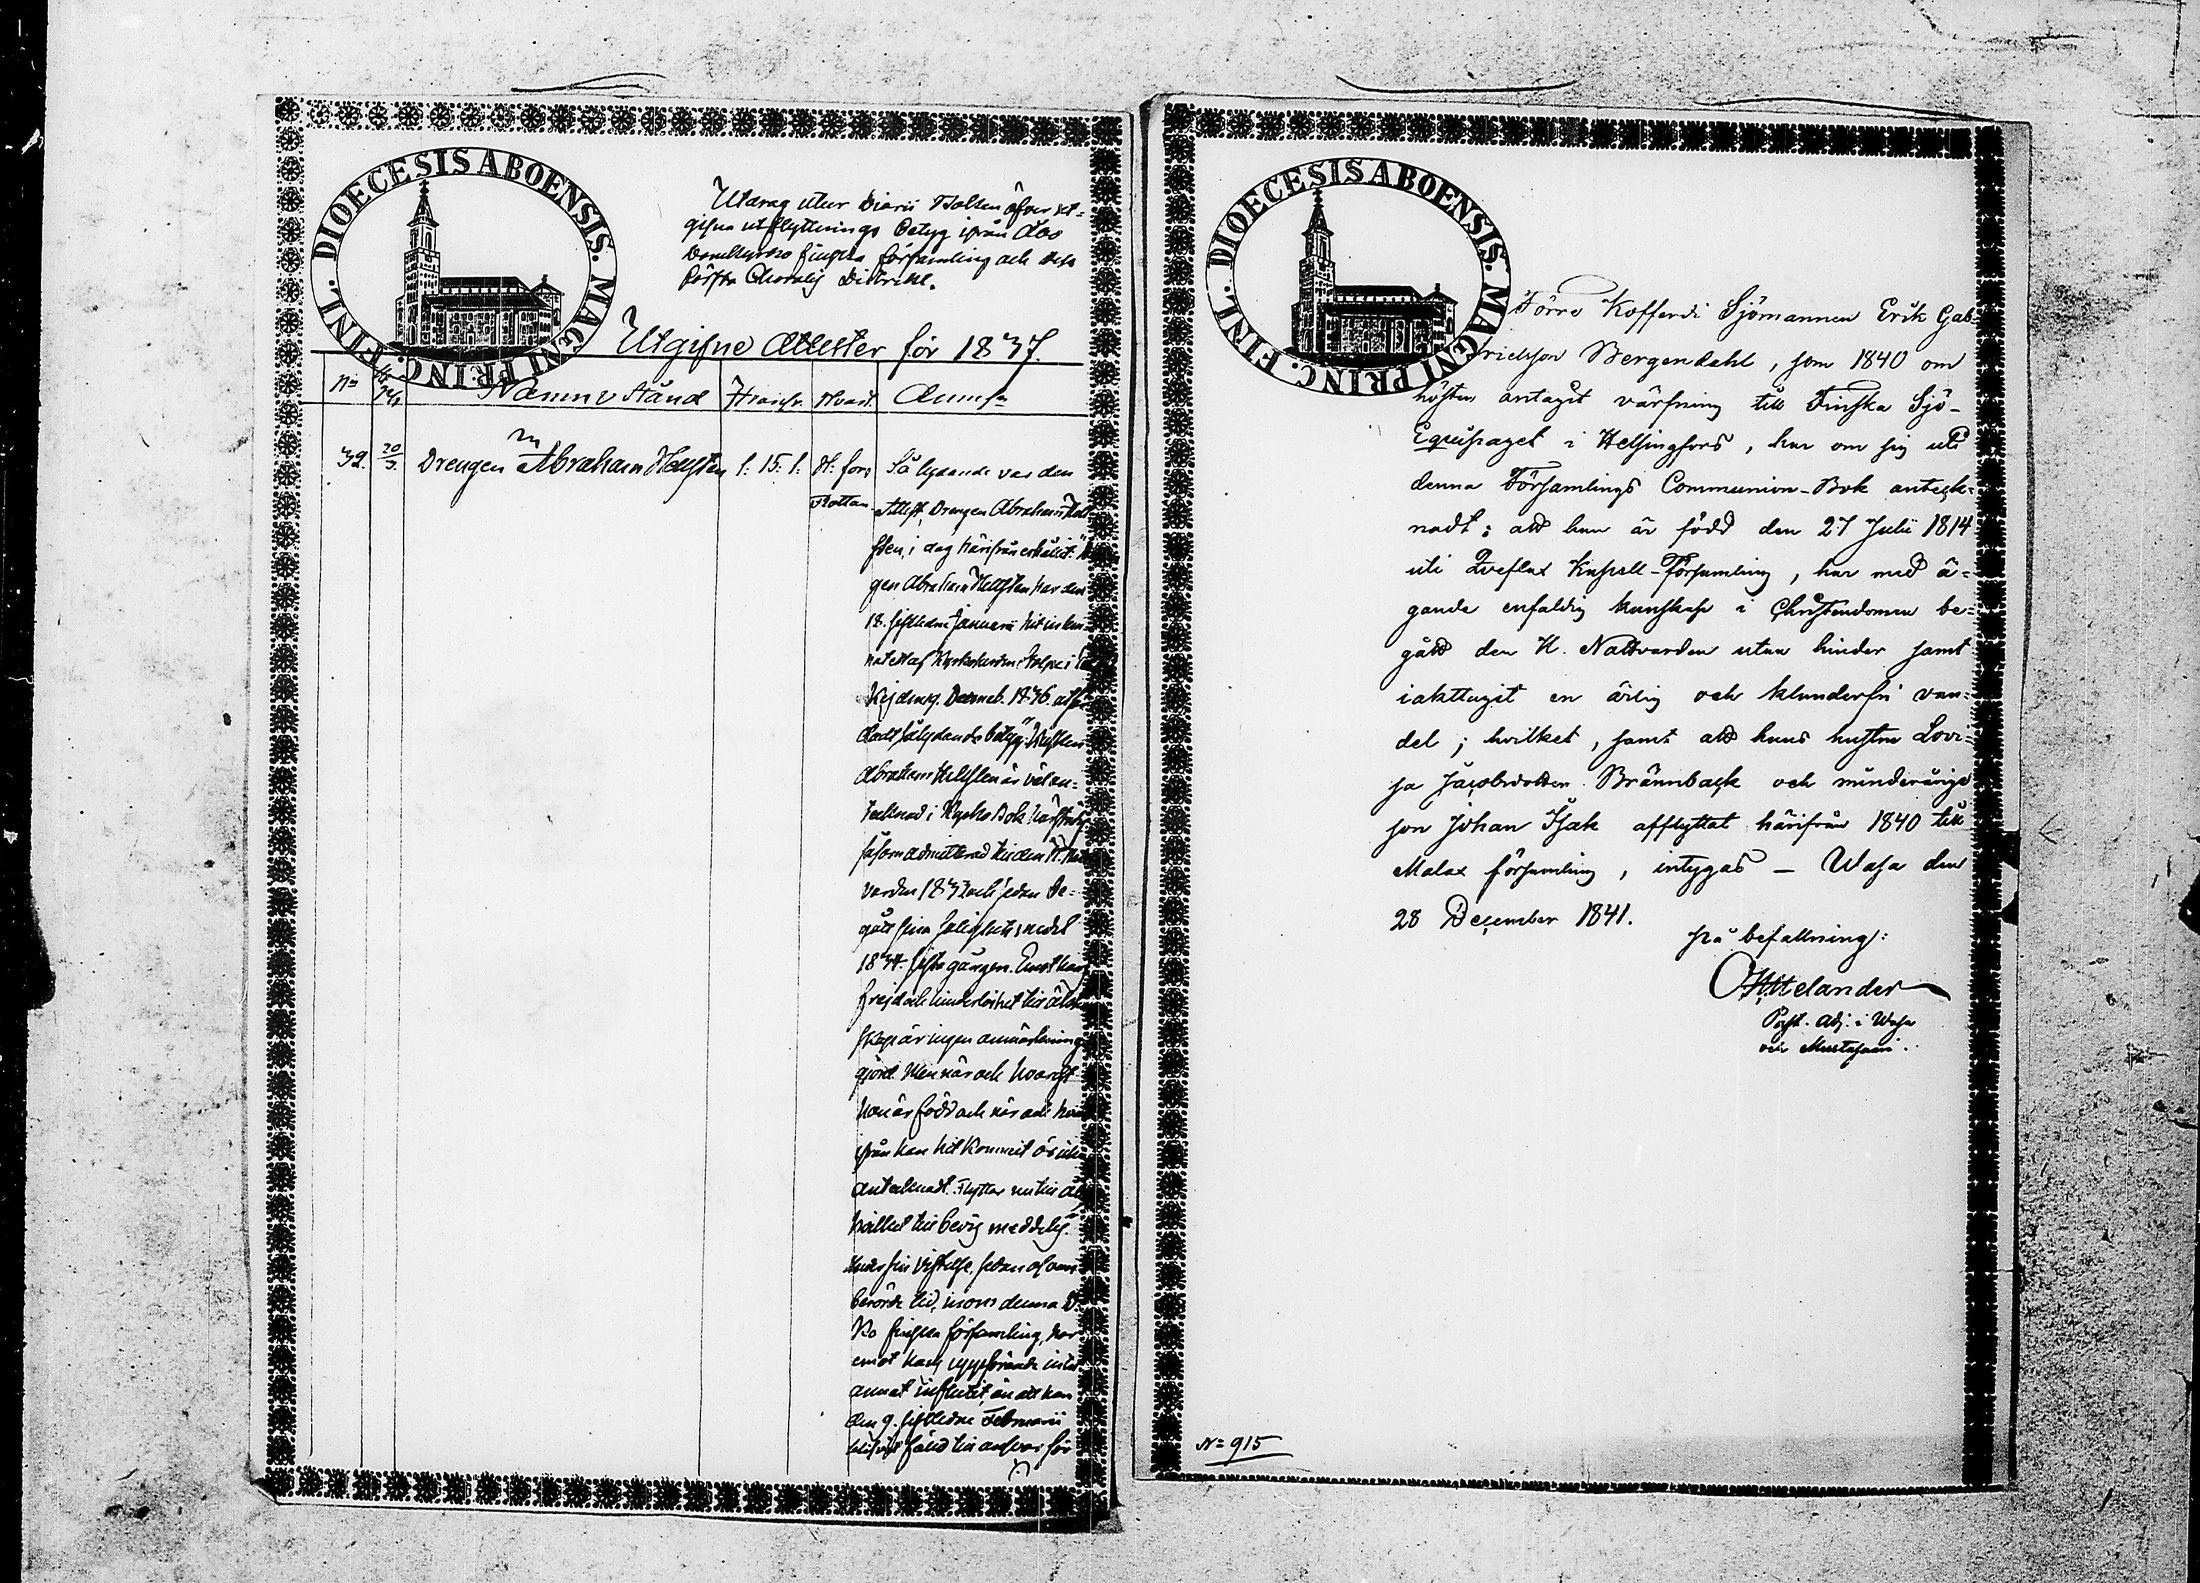 DIOECESIS ABOENSIS. MAGNI PRINC. FINL.
Utdrag utur Diarii Boken öfver ut-
gifna utflyttnings Betyg ifrån Åbo
Domkyrko finska församling och dess
första Choralij District.
Utgifne Attester för 1837.
No Namn o Stånd Hvarifr. Hvart. Anm:
39. 20/3. Drengen Abraham Hellsten 1: 15: 1. H:fors Så lydande var den
Rottan Attest, Drengen Abraham Hell-
sten, i dag härifrån erhållit:
gen Abraham Hellsten har den
18. sistledne Januarii hit inlem-
nat ett af Kyrkoherden
den 9. Decemb. 1836.
dadt sålydande betyg:
Abraham Hellsten är vid an-
tecknad i Kyrko Bok härstädes
såsom admitterad till den H. Natt-
varden 1832 och sedan be-
gått sina salighets medel
1834. sista gången. Emot hans
frejd och hinderlöshet till äkten-
skap är ingen anmärkning
gjord. Men när och hvarest
han är född och när och hvar-
ifrån han hit kommit är icke
antecknadt. Flyttar nu till Åbo
hvilket till bevis meddelas.
Under sin vistelse, sedan ofvan
berörde tid, inom denna D.
Ko finska församling, har
emot hans uppförande intet
annat influtit, än att han
den 9. sistledne Februarii
fäld till ansvar för
DIOECESIS ABOENSIS. MAGNI PRINC. FINL.
Förre Kofferdi Sjömannen Erik Gab-
rielsson Bergendahl, som 1840 om
hösten antagit värfning till Finska Sjö-
Equipaget i Helsingfors, har om sig uti
denna Församlings Communion-Bok anteck-
nadt: att han är född den 27 Julii 1814
uti Qveflax Kapell-Församling, har med ä-
gande enfaldig kunskap i Christendomen be-
gått den H. Nattvarden utan hinder samt
iakttagit en ärlig och klanderfri van-
del; hvilket, samt att hans hustru Lovi-
sa Jacobsdotter Brännback och minderårige
son Johan Isak afflyttat härifrån 1840 till
Malax församling, intygas – Wasa den
28 December 1841.
på befallning:
Past. Adj. i Wasa
och Mustasaari.
No 915